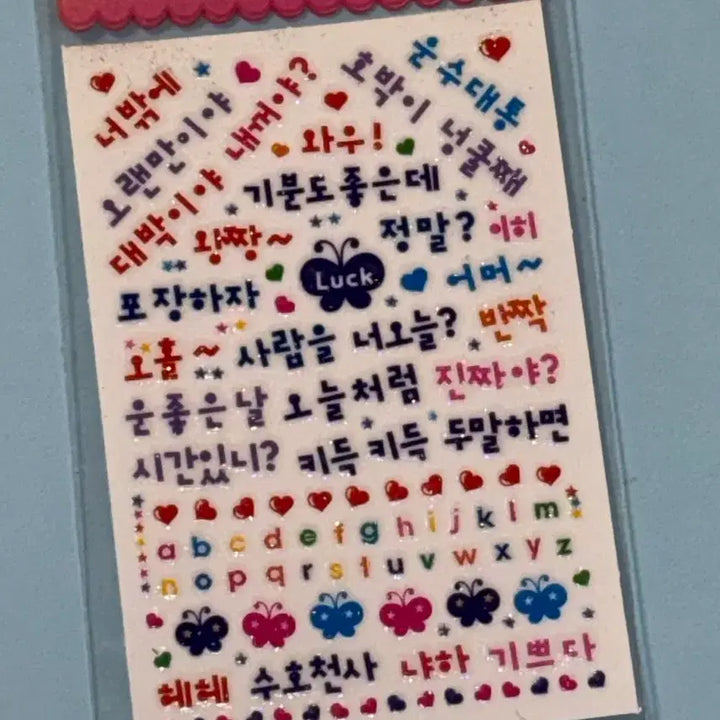 너밖에
오랜만이야
대박이야
내꺼야?
호박이 넝쿨째
운수대통
와우!
기분도좋은데
왕짱~
Luck
정말? 이히
포장하자
어머~
오홈~ 사람을 너오늘? 반짝
운좋은날 오늘처럼 진짜야?
시간있니? 키득키득 두말하면
a b c d e f g h i j k l m
n o p q r s t u v w x y z
헤헤! 수호천사 냐하 기쁘다